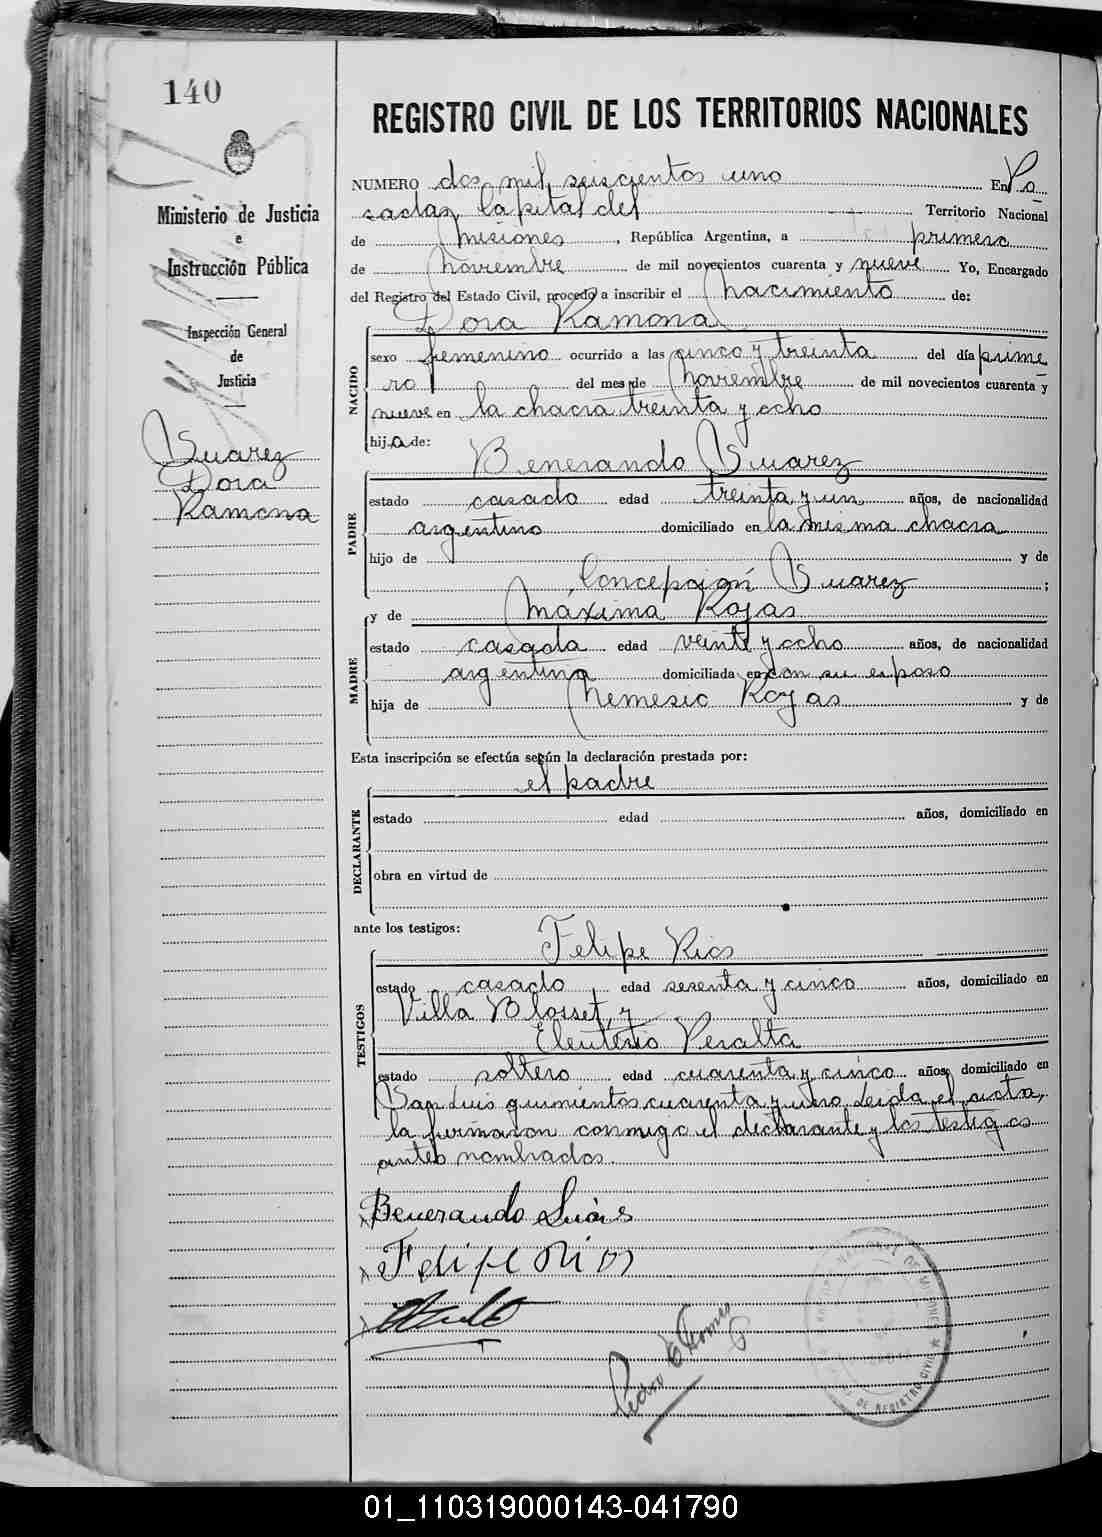 140
Ministerio de Justicia
e
Instrucción Pública
Inspección General
de
Justicia
Suarez
Dora
Ramona
REGISTRO CIVIL DE LOS TERRITORIOS NACIONALES
NUMERO dos mil seiscientos uno En Po
sadas, Capital del Territorio Nacional
de Misiones, República Argentina, a primero
de Noviembre de mil novecientos cuarenta y nueve Yo, Encargado
del Registro del Estado Civil, procedo a inscribir el Nacimiento de:
Dora Ramona
NACIDO
sexo femenino ocurrido a las cinco y treinta del día prime
ro del mes de Noviembre de mil novecientos cuarenta y
nueve en la chacra treinta y ocho
hij a de:
Benerando Suarez
PADRE
estado casado edad treinta y un años, de nacionalidad
argentino domiciliado en la misma chacra
hijo de y de
Concepción Suarez ;
y de Máxima Rojas
MADRE
estado casada edad veinte y ocho años, de nacionalidad
argentina domiciliada en con su esposo
hija de Nemesio Rojas y de
Esta inscripción se efectúa según la declaración prestada por:
el padre
DECLARANTE
estado edad años, domiciliado en
obra en virtud de
ante los testigos:
Felipe Rios
TESTIGOS
estado casado edad sesenta y cinco años, domiciliado en
Villa Blosset, y
Eleuterio Peralta
estado soltero edad cuarenta y cinco años, domiciliado en
San Luis quinientos cuarenta y uno. Leida el acta,
la firmaron conmigo el declarante y los testigos
antes nombrados.
Benerando Suares
Felipe Rios
Pedro E Gomez
DE REGISTRO CIVIL
01_110319000143-041790